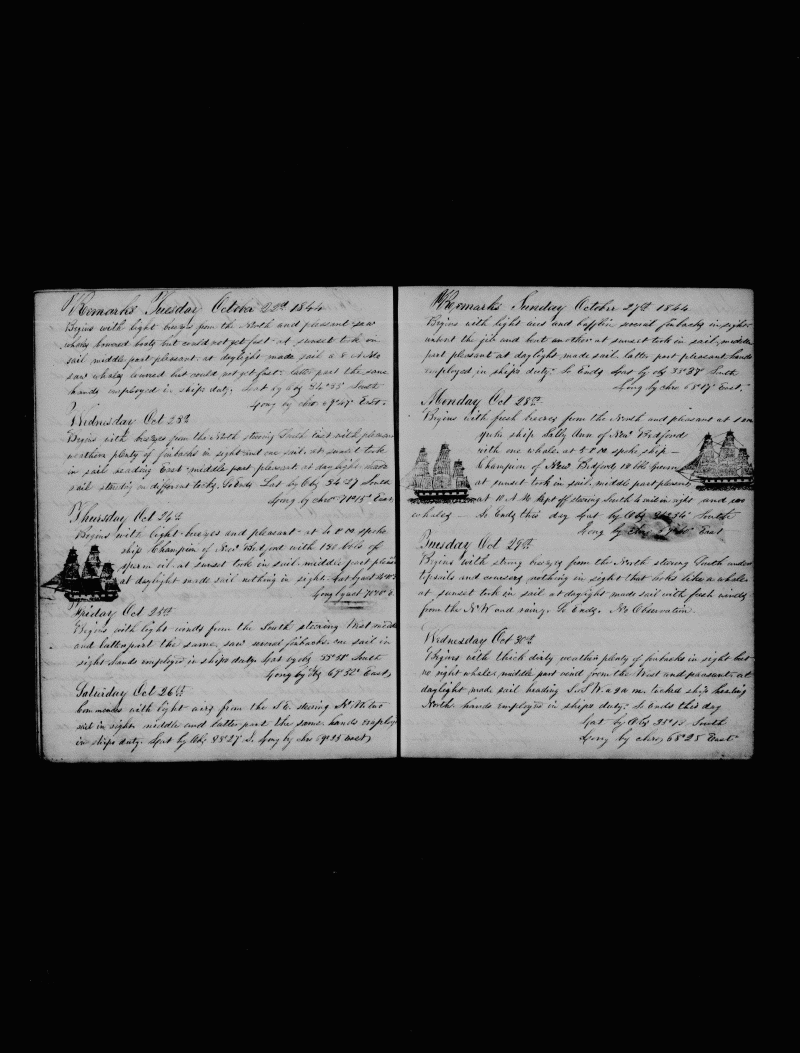 Remarks Tuesday October 22d 1844
Begins with light breezes from the North and pleasant saw
whales lowered boats but could not get fast - at sunset took in
sail middle part pleasant at daylight made sail a
saw whales lowered but could not get fast - latter part the same
hands employed in ships duty. Lat by Obs 34°33 South
Long by chro 69°47 East.
Wednesday Oct 23th
Begins with breezes from the North steering South East with pleasant
weather plenty of finbacks in sight and one sail at sunset took
in sail heading East middle part pleasant at daylight made
sail standing on different tacks. So Ends. Lat by Obs 34°27 South
Long by chro 71°15 East
Thursday Oct 24th
Begins with light breezes and pleasant - at spoke
ship Champion of New Bedford with 150 bbls of
sperm oil at sunset took in sail middle part pleasant
at daylight made sail nothing in sight. Lat by
Long by 70°10 E
Friday Oct 25th
Begins with light winds from the South steering West middle
and latter part the same, saw several finbacks one sail in
sight hands employed in ships duty Lat by obs South
Long by 68°52 East
Saturday Oct 26th
Commences with light airs from the S.E. steering N.W. two
sail in sight middle and latter part the same hands employed
in ships duty. Lat by Obs 33°27 S. Long by chro 69°33 East
Remarks Sunday October 27th 1844
Begins with light airs and bafflin several finbacks in sight
unbent the jib and bent another at sunset took in sail, middle
part pleasant at daylight made sail latter part pleasant hands
employed in ships duty. So Ends Lat by obs 33°37 South
Long by chro 68°17 East.
Monday Oct 28th
Begins with fresh breezes from the North and pleasant at
ship Sally Ann of New Bedford
with one whale at 5 P.M spoke ship -
Champion of New Bedford 10
at sunset took in sail, middle part pleasant
at 10 A.M kept off steering South 4 sail in sight and no
whales - So Ends this day Lat by Obs 34°34 South
Long by Chro East
Tuesday Oct 29th
Begins with strong breezes from the North steering South under
topsails and courses nothing in sight that looks like a whale
at sunset took in sail at daylight made sail with fresh winds
from the N.W and rainy. So Ends. No Observation.
Wednesday Oct 30th
Begins with thick dirty weather plenty of finbacks in sight but
no right whales middle part wind from the West and pleasant - at
daylight made sail heading S.S.W. at 9 a m. tacked ship heading
North. hands employed in ships duty. So Ends this day
Lat by Obs South
Long by chro, 68°25 East